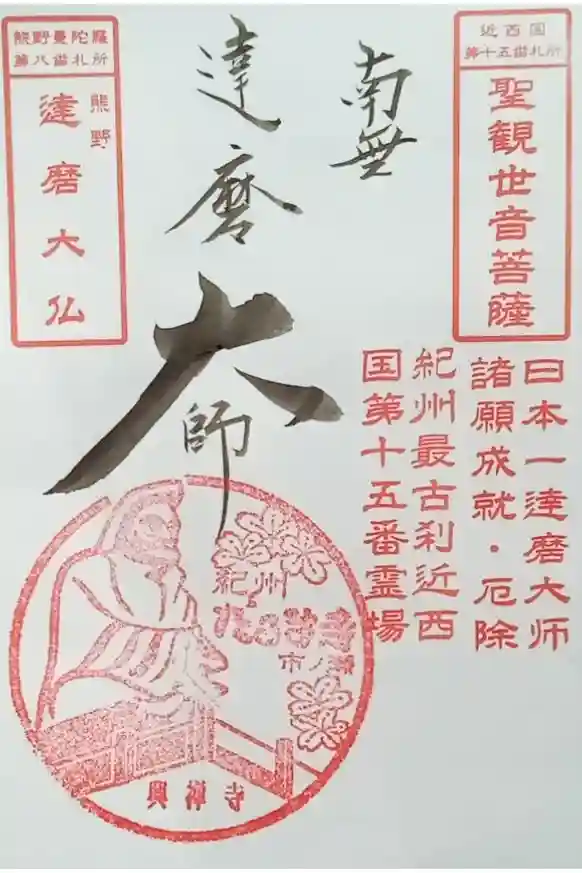 近西国
第十五番札所
聖観世音菩薩
南無
達磨
大師
熊野曼陀羅
第八番札所
熊野
達磨大仏
日本一達磨大师
諸願成就・厄除
紀州最古刹近西
国第十五番霊場
紀州
だるま寺
市ノ瀬
興禅寺